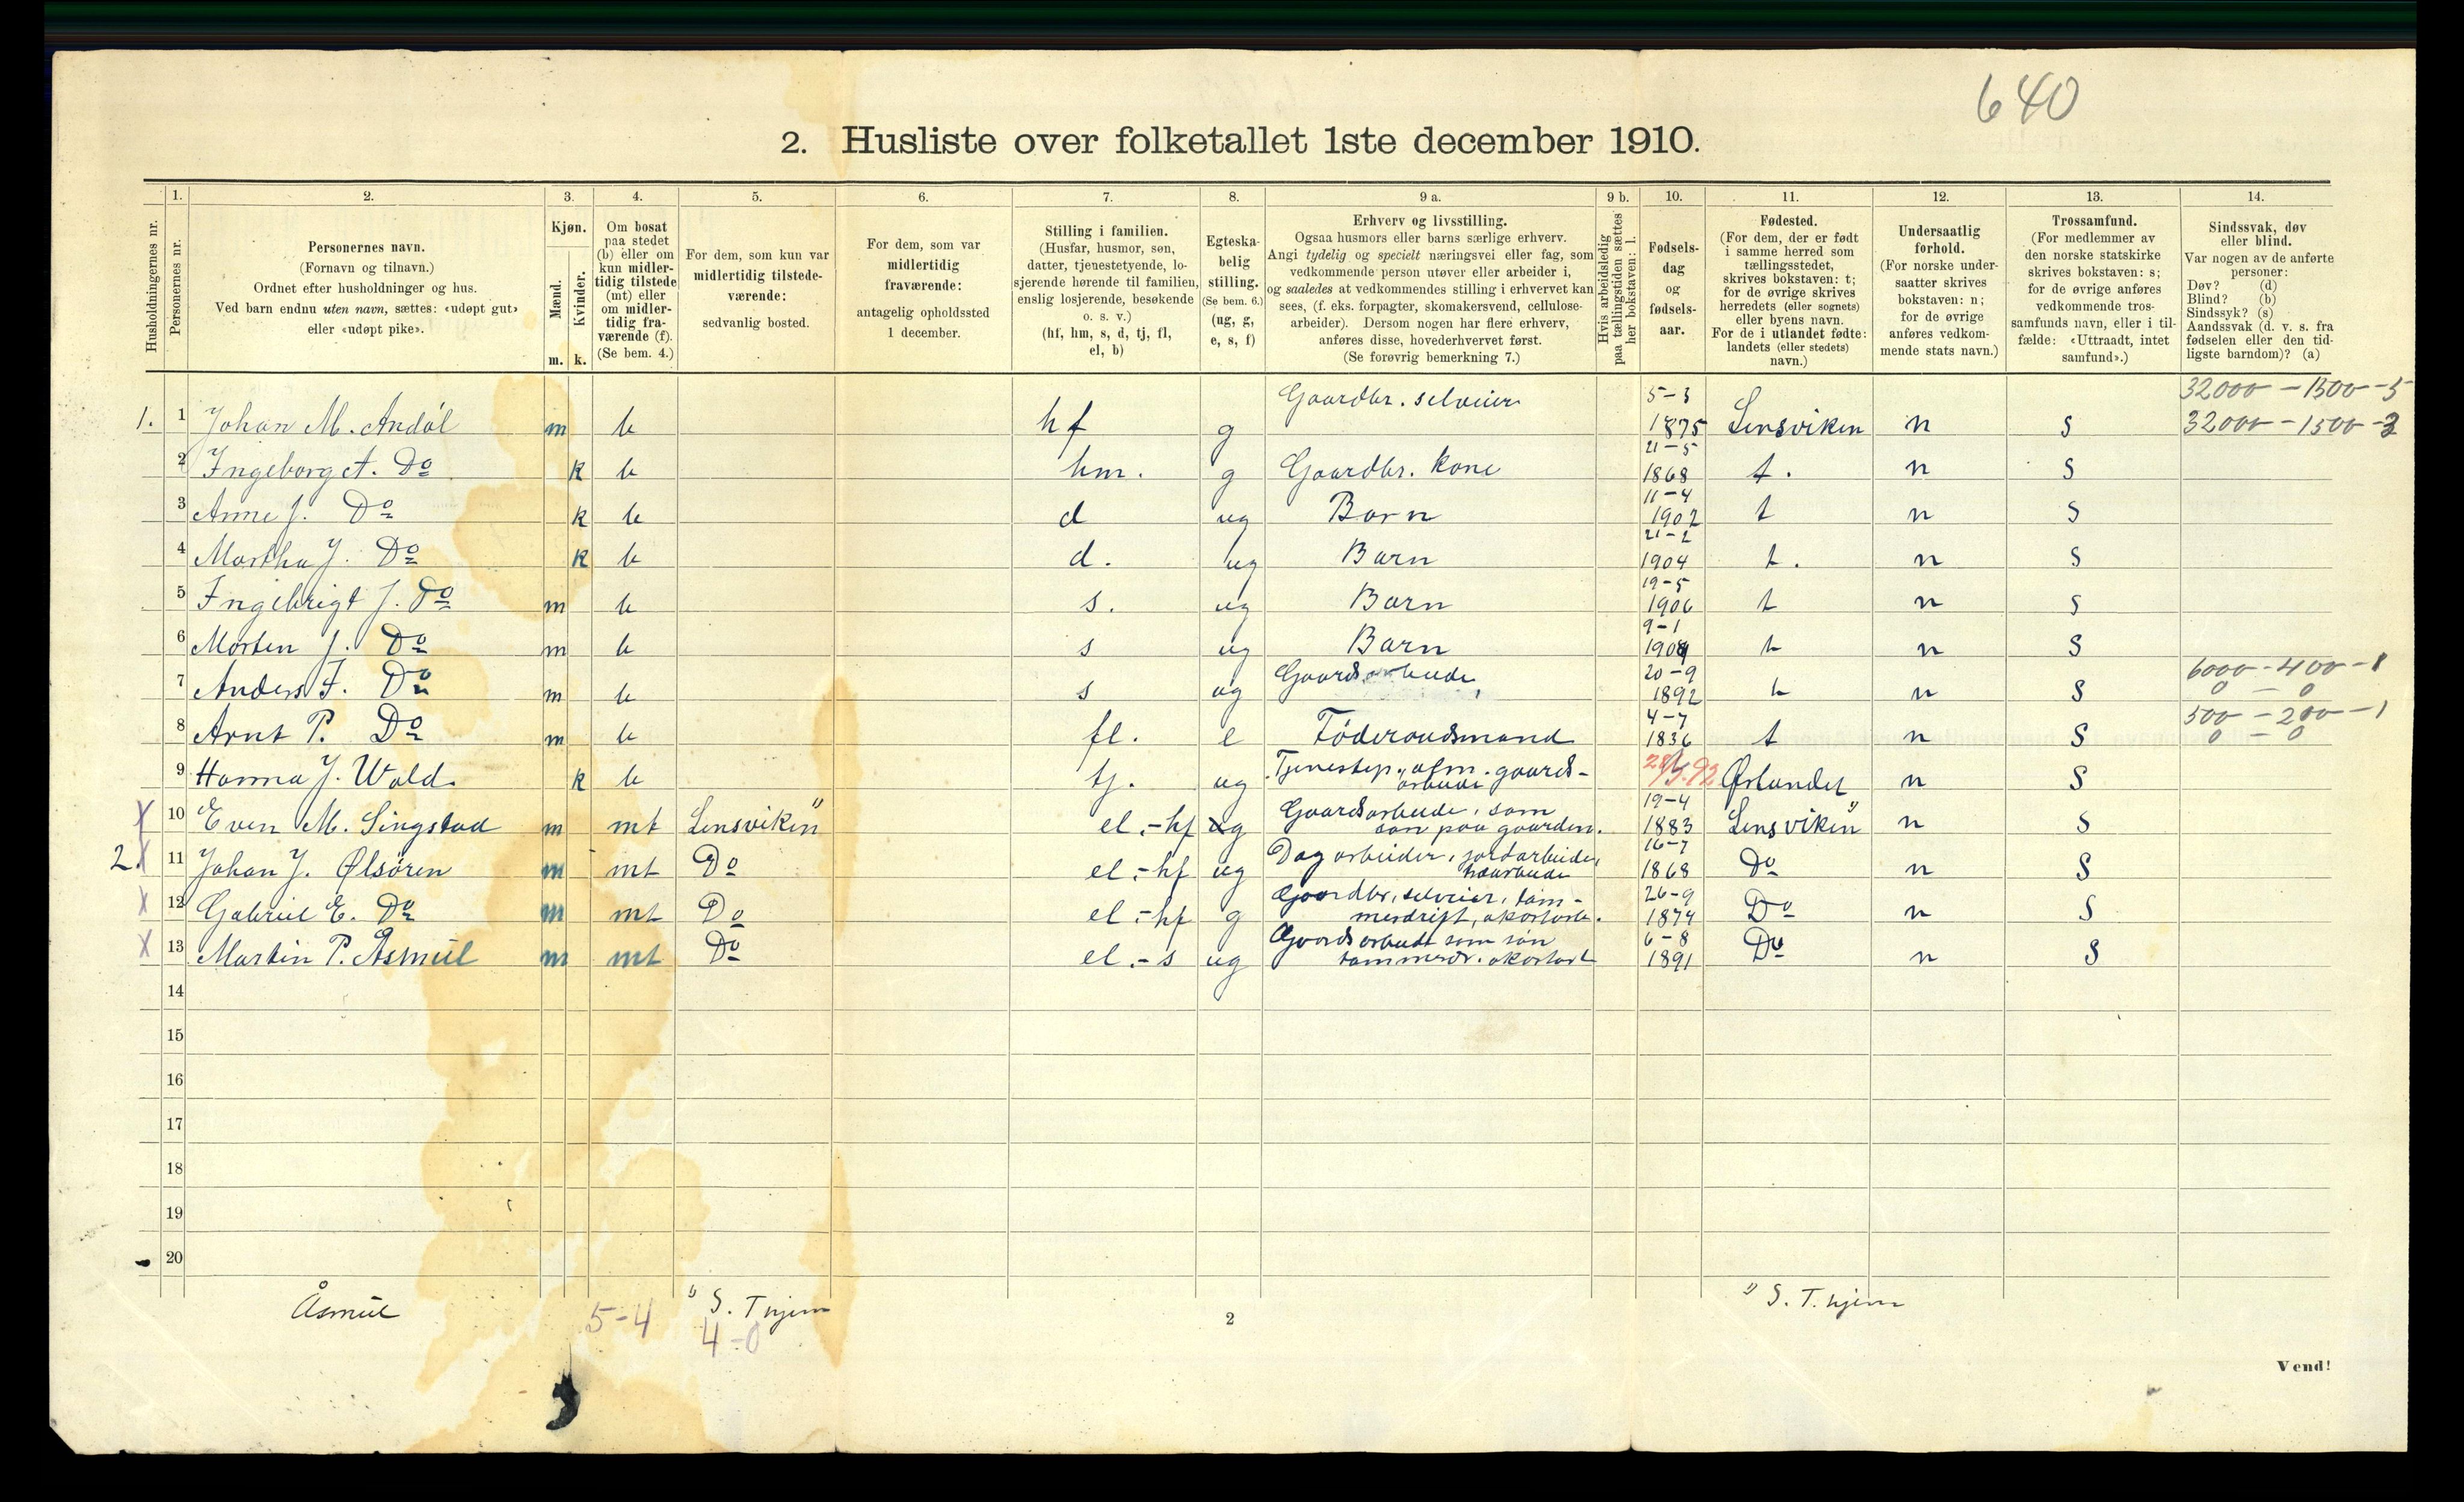 640
2. Husliste over folketallet 1ste december 1910.
Husholdningernes nr.
1.
Personernes nr.
2.
Personernes navn.
(Fornavn og tilnavn.)
Ordnet efter husholdninger og hus.
Ved barn endnu uten navn, sættes: «udøpt gut»
eller «udøpt pike».
3.
Kjøn.
Mænd.
Kvinder.
m. k.
4.
Om bosat
paa stedet
(b) eller om
kun midler-
tidig tilstede
(mt) eller
om midler-
tidig fra-
værende (f).
(Se bem. 4.)
5.
For dem, som kun var
midlertidig tilstede-
værende:
sedvanlig bosted.
6.
For dem, som var
midlertidig
fraværende:
antagelig opholdssted
1 december.
7.
Stilling i familien.
(Husfar, husmor, søn,
datter, tjenestetyende, lo-
sjerende hørende til familien,
enslig losjerende, besøkende
o. s. v.)
(hf, hm, s, d, tj, fl,
el, b)
8.
Egteska-
belig
stilling.
(Se bem. 6.)
(ug, g,
e, s, f)
9 a.
Erhverv og livsstilling.
Ogsaa husmors eller barns særlige erhverv.
Angi tydelig og specielt næringsvei eller fag, som
vedkommende person utøver eller arbeider i,
og saaledes at vedkommendes stilling i erhvervet kan
sees, (f. eks. forpagter, skomakersvend, cellulose-
arbeider). Dersom nogen har flere erhverv,
anføres disse, hovederhvervet først.
(Se forøvrig bemerkning 7.)
9 b.
Hvis arbeidsledig
paa tællingstiden sættes
her bokstaven: l.
10.
Fødsels-
dag
og
fødsels-
aar.
11.
Fødested.
(For dem, der er født
i samme herred som
tællingsstedet,
skrives bokstaven: t;
for de øvrige skrives
herredets (eller sognets)
eller byens navn.
For de i utlandet fødte:
landets (eller stedets)
navn.)
12.
Undersaatlig
forhold.
(For norske under-
saatter skrives
bokstaven: n;
for de øvrige
anføres vedkom-
mende stats navn.)
13.
Trossamfund.
(For medlemmer av
den norske statskirke
skrives bokstaven: s;
for de øvrige anføres
vedkommende tros-
samfunds navn, eller i til-
fælde: «Uttraadt, intet
samfund».)
14.
Sindssvak, døv
eller blind.
Var nogen av de anførte
personer:
Døv? (d)
Blind? (b)
Sindssyk? (s)
Aandssvak (d. v. s. fra
fødselen eller den tid-
ligste barndom)? (a)
32000 - 1300 - 5
1. 1 Johan M. Andól m b hf g Gaardbr. selveier 5-3 1875 Lensviken n s 32000 - 1500 - 3
2 Ingeborg A. Do k b hm. g Gaardbr. kone 21-5 1868 t. n s
3 Anne J. Do k b d ug Barn 11-4 1902 t n s
4 Martha J. Do k b d. ug Barn 21-2 1904 t. n s
5 Ingebrigt J. Do m b s. ug Barn 19-5 1906 t n s
6 Morten J. Do m b s ug Barn 9-1 1909 t n s
7 Anders I. Do m b s ug Gaardsarbeide 20-9 1892 t n s 6000 - 400 - 1
0 - 0
8 Arnt P. Do m b fl. e Föderaadsmand 4-7 1836 t n s 500 - 200 - 1
0 - 0
9 Hanna J. Wold k b tj. ug Tjenestep., alm. gaards-
arbeide 92 Ørlandet n s
X 10 Even M. Singstad m mt Lensviken" el.-hf g Gaardsarbeide, som
søn paa gaarden. 19-4 1883 Lensviken" n s
2. X 11 Johan J. Ølsören m mt Do el.-hf ug Dagarbeider, jordarbeide,
16-7 1868 Do n s
X 12 Gabriel E. Do m mt Do el.-hf g Gaardbr, selveier, töm-
merdrift, akortarb. 26-9 1874 Do n s
X 13 Martin P. Åsmul m mt Do el.-s ug Gaardsarbeide som sön
tömmerdr. akortarb 6-8 1891 Do n s
14
15
16
17
18
19
20
Åsmul
5-4
" S. Thjem
4-0
2
" S. T.hjem
Vend!